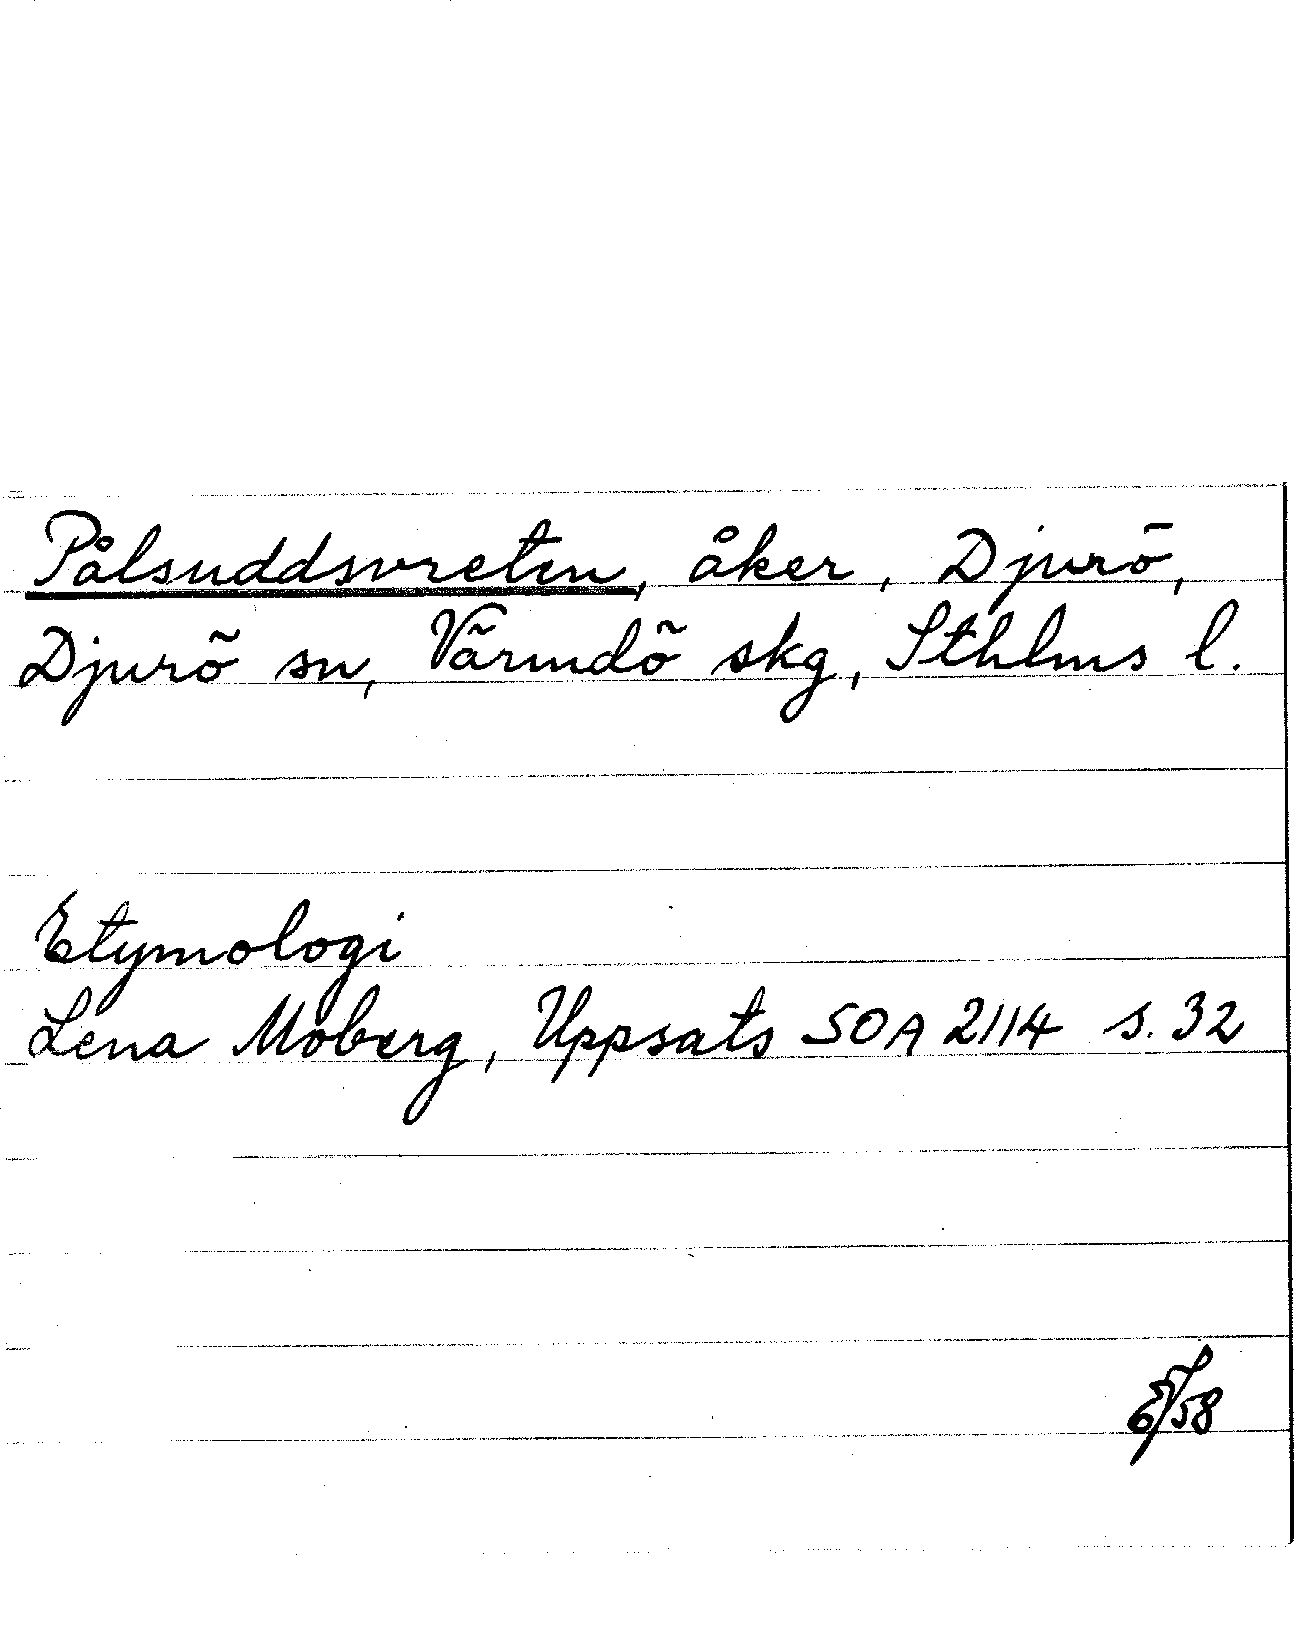 Pålsuddsvreten, åker, Djurö,
Djurö sn, Värmdö skg, Sthlms l.
Etymologi
Lena Moberg, Uppsats SOA 2114 s. 32